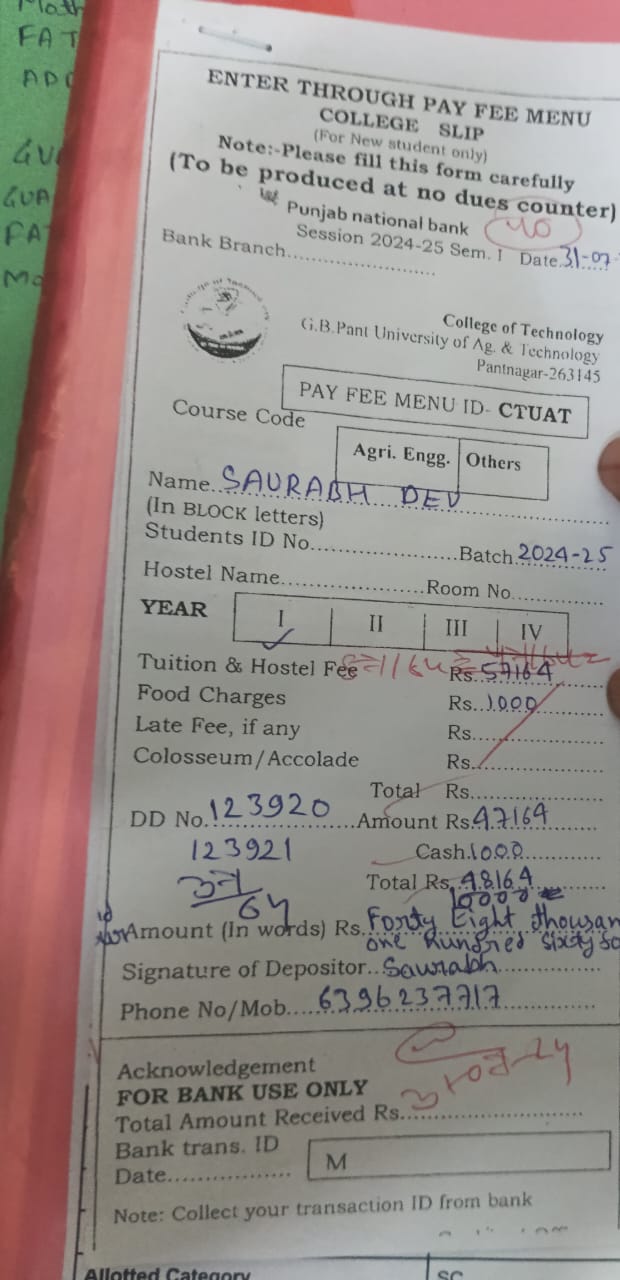 Math
FAT
GUA
FAT
ENTER THROUGH PAY FEE MENU
COLLEGE SLIP
(For New student only)
Note:-Please fill this form carefully
(To be produced at no dues counter)
Punjab national bank
Session 2024-25 Sem. I Date.31-07
Bank Branch
College of Technology
G.B.Pant University of Ag. & Technology
Pantnagar-263145
PAY FEE MENU ID- CTUAT
Course Code
Agri. Engg. Others
Name..SAURABH DEV
(In BLOCK letters)
Students ID No. Batch 2024-25
Hostel Name Room No.
YEAR I II III IV
Tuition & Hostel Fee Rs. 57164
Food Charges Rs..1000
Late Fee, if any Rs.
Colosseum/Accolade Rs.
Total Rs.
DD No. 123920 Amount Rs.47164
123921 Cash.1000
Total Rs. 48164
10000
64
Amount (In words) Rs. Forty Eight thousan
one Hundred sixty
Signature of Depositor..Saurabh
Phone No/Mob.....6396237717
Acknowledgement
FOR BANK USE ONLY
Total Amount Received Rs.
Bank trans. ID
M
Date
Note: Collect your transaction ID from bank
Allotted Category SC